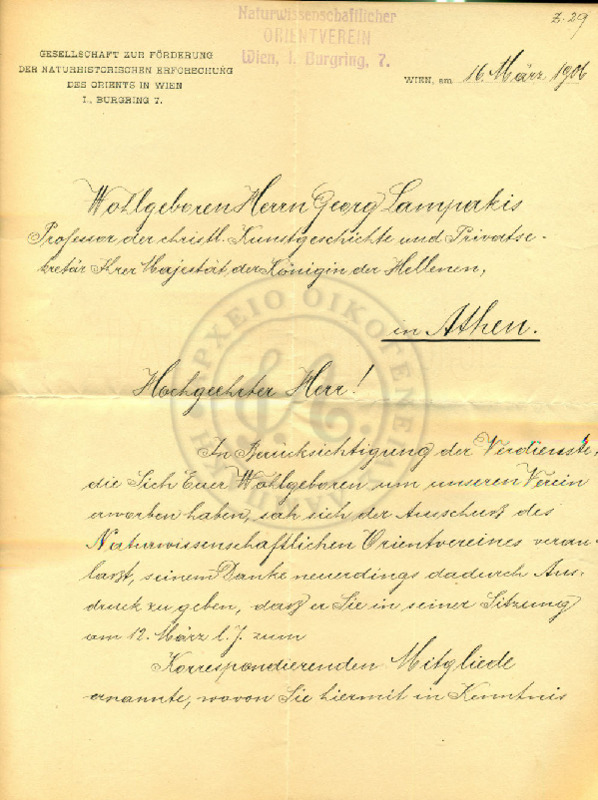 Z. 29
Naturwissenschaftlicher
ORIENTVEREIN
Wien, I. Burgring, 7.
GESELLSCHAFT ZUR FÖRDERUNG
DER NATURHISTORISCHEN ERFORSCHUNG
DES ORIENTS IN WIEN
I., BURGRING 7.
WIEN, am 16. März 1906
Wohlgeboren Herrn Georg Lampakis
Professor der christl. Kunstgeschichte und Privatse-
kretär Ihrer Majestät der Königin der Hellenen,
in Athen.
Hochgeehrter Herr!
In Berücksichtigung der Verdienste,
die Sich Euer Wohlgeboren um unseren Verein
erworben haben, sah sich der Ausschuß des
Naturwissenschaftlichen Orientvereines veran-
laßt, seinem Danke neuerdings dadurch Aus-
druck zu geben, daß er Sie in seiner Sitzung
am 12. März l. J. zum
Korrespondierenden Mitgliede
ernannte, wovon Sie hiermit in Kenntnis
ΑΡΧΕΙΟ ΟΙΚΟΓΕΝΕΙΑ